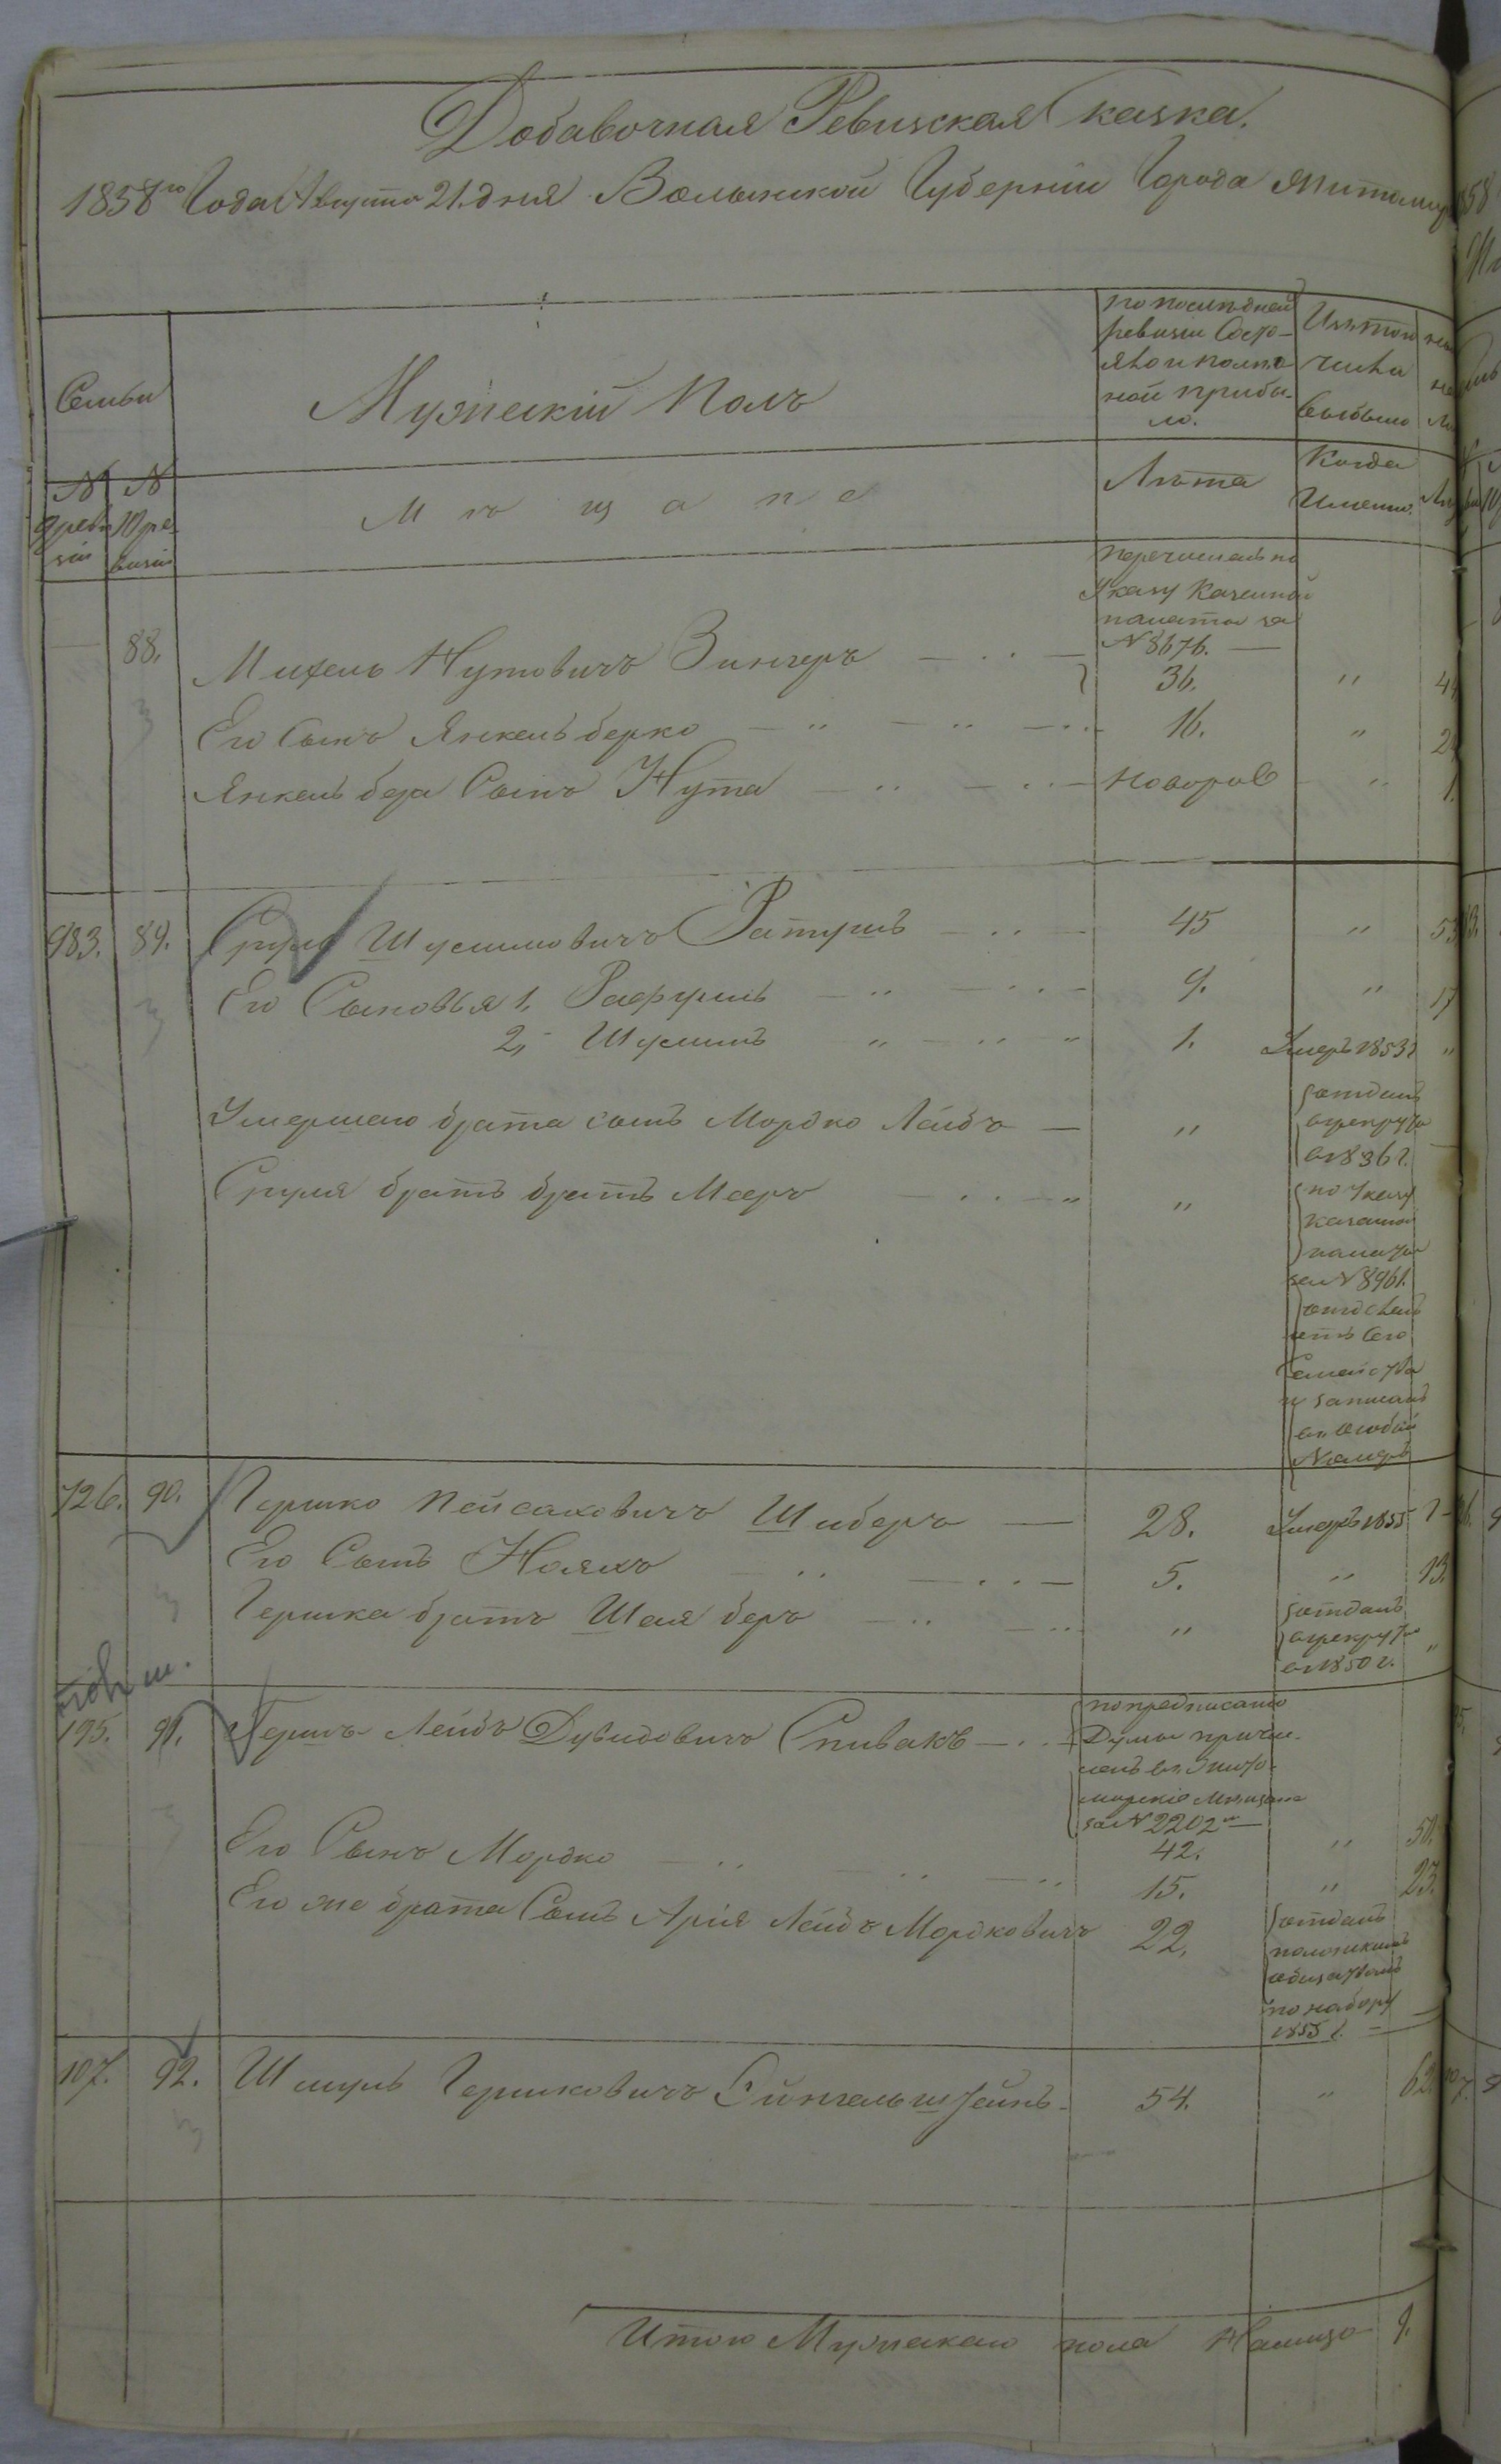 Добавочная Ревизская Сказка.
1858го Года Августа 21. дня Волынской Губерніи Города Житомир
Семьи
Мужескій Полъ
по последней
ревизіи Состо-
яло и после
ной прибы-
ло.
Изъ того
числа
выбыло
N N
9 реви 10 ре-
зіи визіи
М ѣ щ а н е
Лѣта
Когда
Именно.
Перечисленъ по
Указу Казенной
палаты за
N 8676.
88. Михель Нутовичъ Зингеръ 36. " 44
Его Сынъ Янкель берко 16. " 24
Янкель бера Сынъ Нута Новорож " 1.
983. 89. Сруль Шулимовичъ Ратушъ 45 " 53
Его Сыновья 1, Рафуилъ 9. " 17
2, Шулимъ 1. Умеръ 1853 г "
Умершаго брата сынъ Мордко Лейбъ "
отданъ
в рекруты
в 1836 г.
Сруля братъ братъ Мееръ "
по Указу
казенной
палаты
за N 8961.
отдѣленъ
отъ Сего
Семейства
и записанъ
въ особый
Номеръ
726. 90. Гершко Пейсаховичъ Шиберъ 28. Умеръ 1855
Его Сынъ Нояхъ 5. " 13.
Гершка братъ Шая беръ "
отданъ
в рекруты
в 1850 г. "
195. 91. Гершъ Лейбъ Дувидовичъ Спивакъ
по предписанію
Думы причи-
ленъ въ Жито-
мирскіе Мѣщане
за N 2202м
42. " 50.
Его Сынъ Мордко 15. " 23.
Его же брата Сынъ Арія Лейбъ Мордковичъ 22.
отданъ
обществомъ
по набору
1855 г.
107. 92. Шмуль Гершковичъ Финкельштейнъ 54. " 62.
Итого Мужескаго пола Налицо 9.